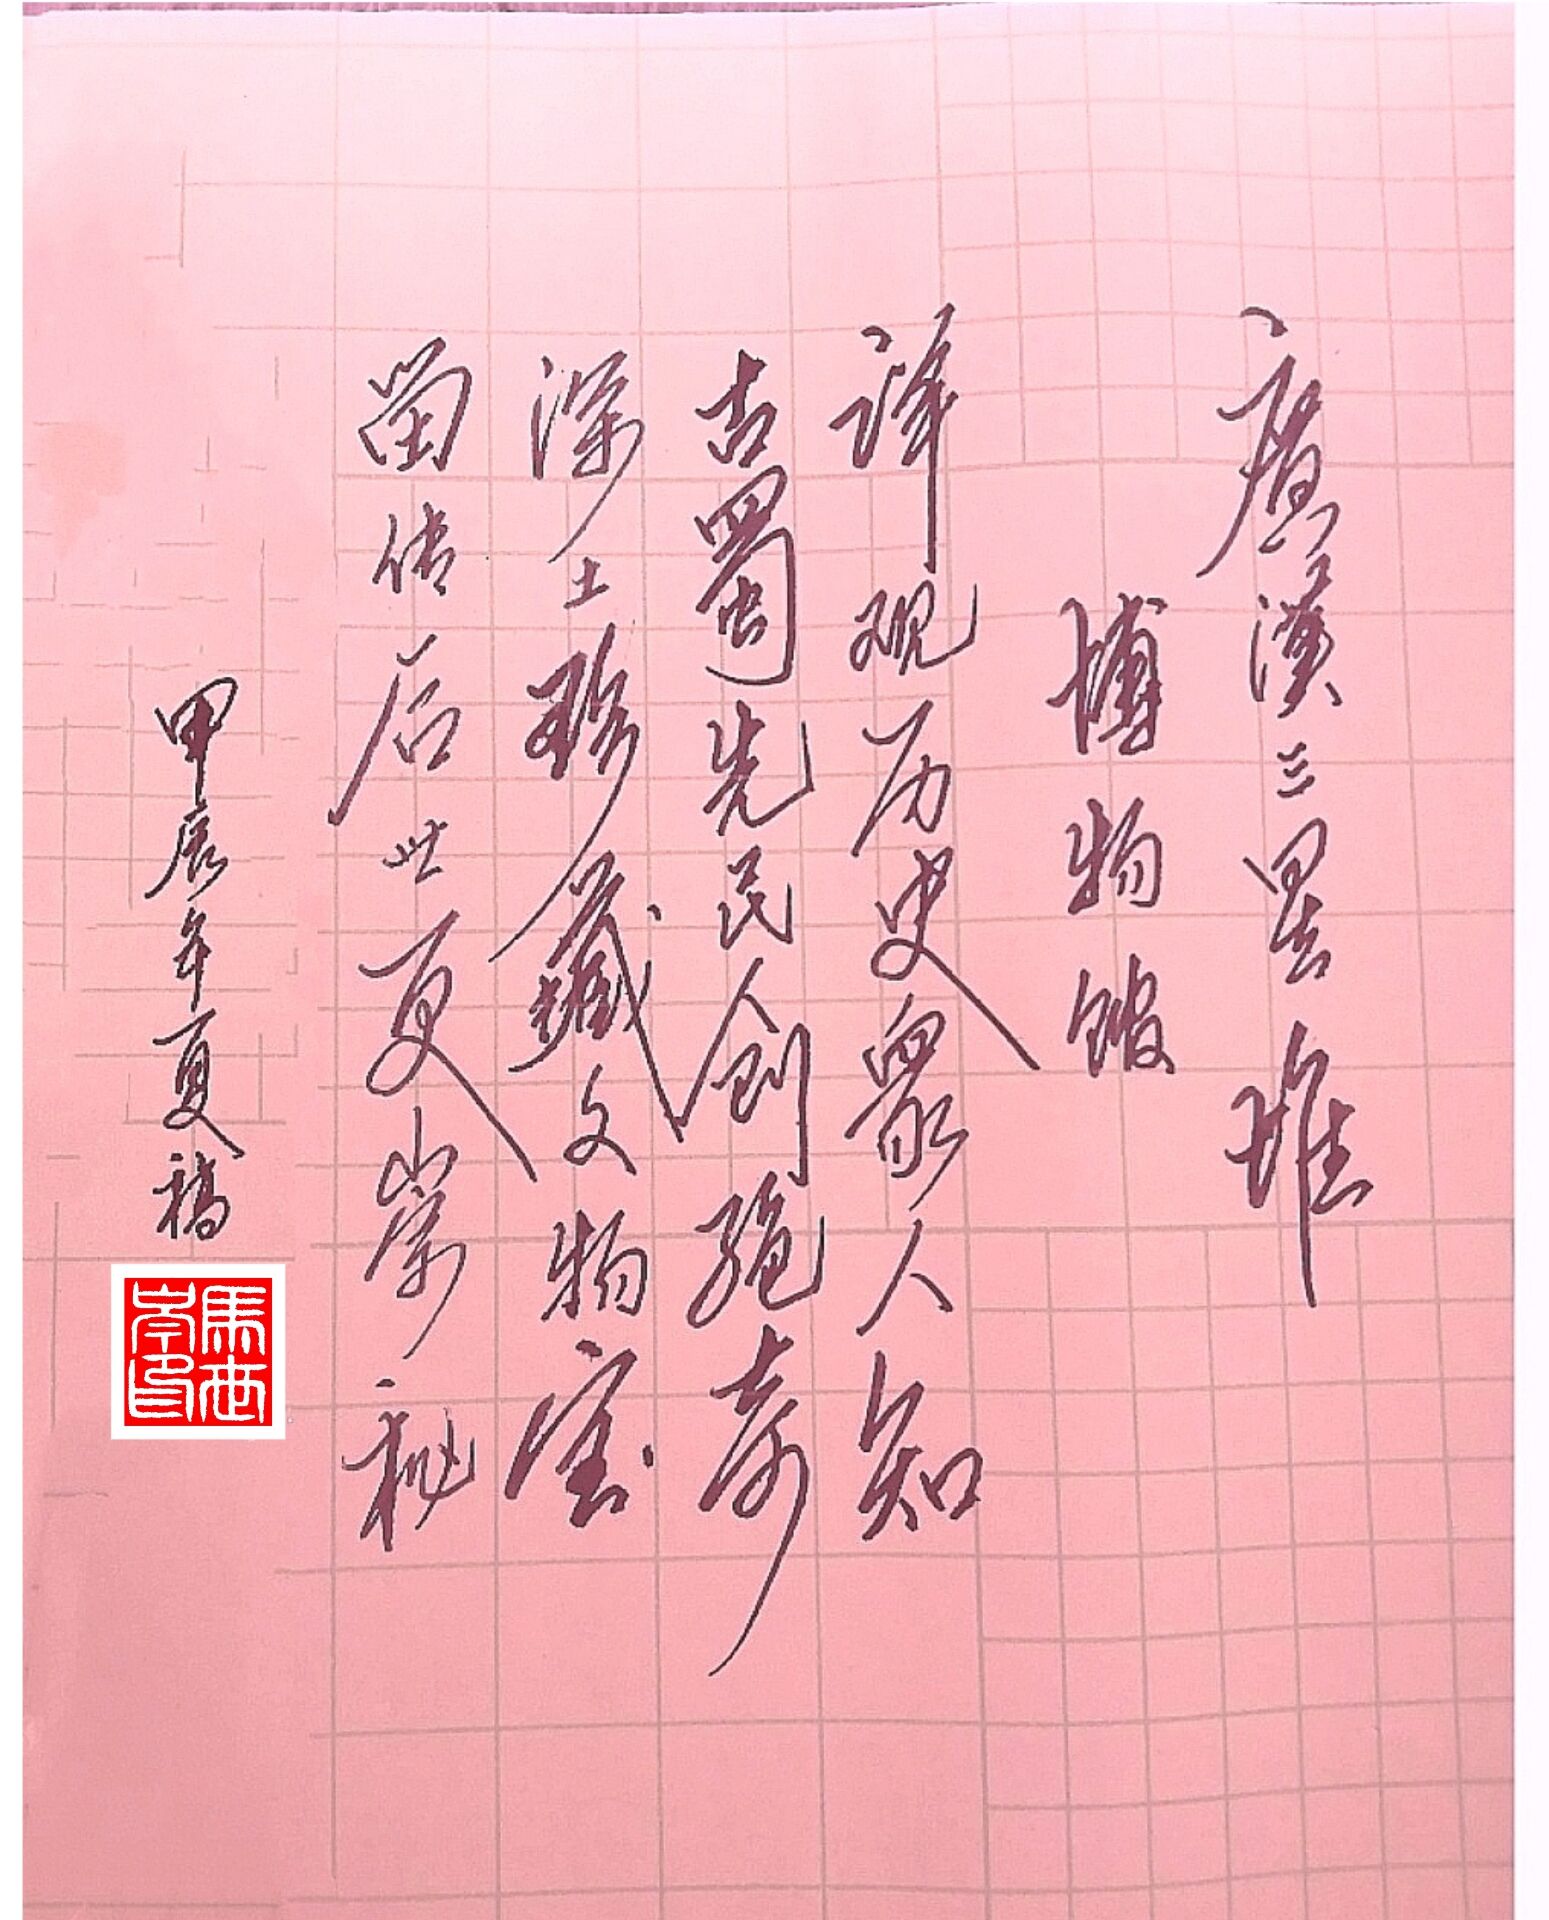 廣漢三星堆
博物馆
详观历史众人知
古蜀先民创绝奇
深土珍藏文物宝
留传后世更崇秘
甲辰年夏稿
馬世岑印